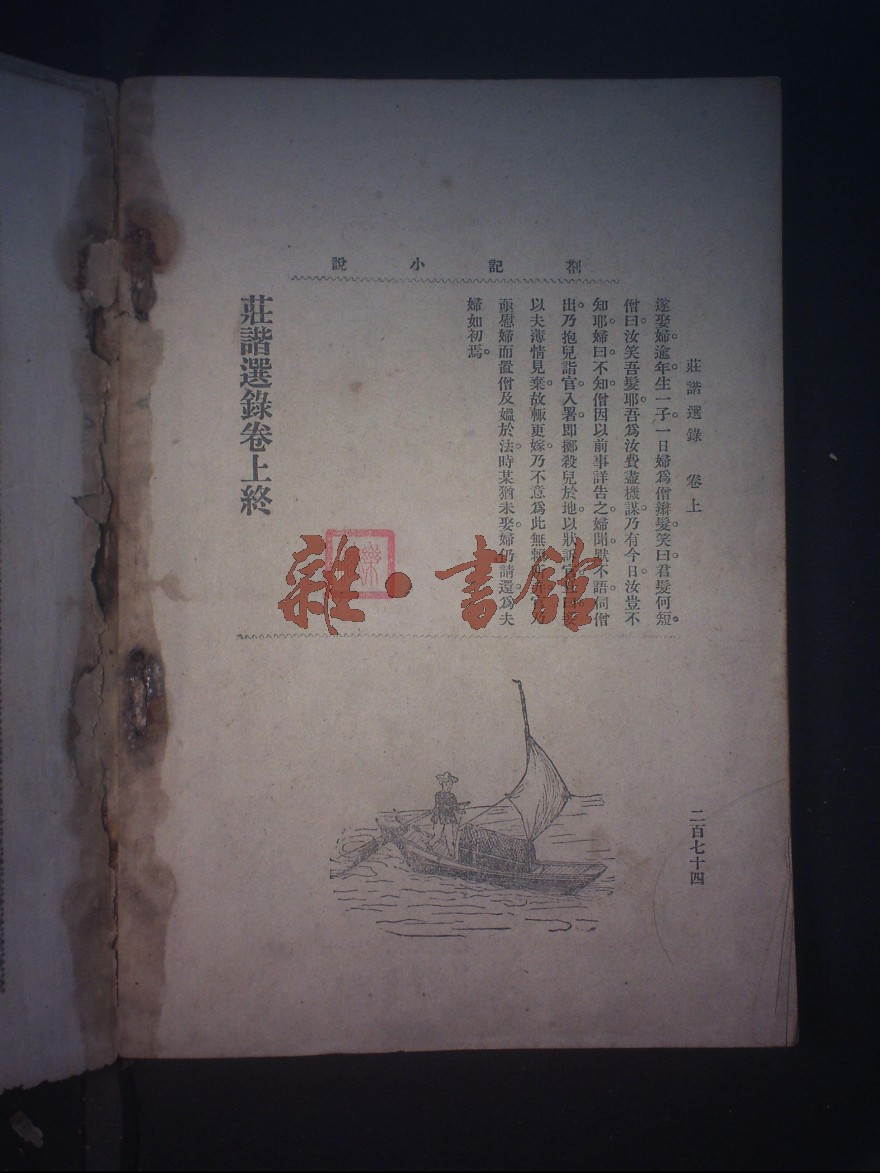 莊諧選錄　卷上
二百七十四
劄記小說
遂娶婦。逾年生一子。一日婦爲僧辮髮。笑曰。君髮何短。
僧曰。汝笑吾髮耶。吾爲汝費盡機謀。乃有今日。汝豈不
知耶。婦曰。不知。僧因以前事詳告之。婦聞默不語。伺僧
出。乃抱兒詣官。入署。即擲殺兒於地。以狀訴官
以夫薄情見棄。故輒更嫁。乃不意爲此無
慰婦而置僧及嫗於法。時某猶未娶。婦仍請還爲夫
婦如初焉。
莊諧選錄卷上終
雜·書館